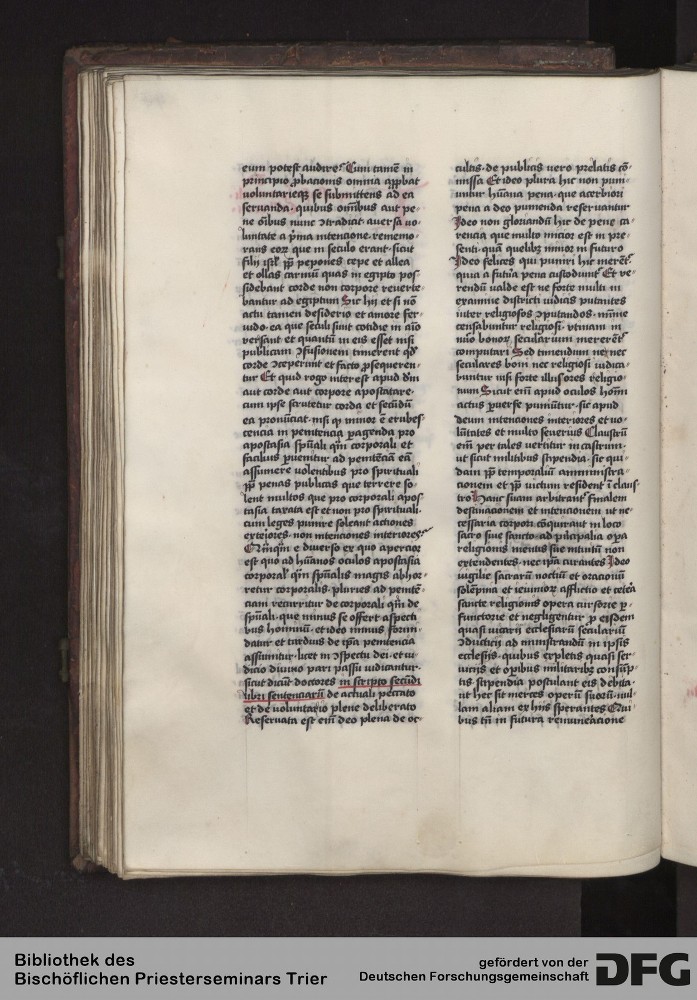 eum potest audire? Cum tamē in
principio ꝓbacionis omnia aꝓbat
voluntarieqꝫ se submittens ad ea
seruanda · quibus om̄ibus aut pe-
ne oībus nunc ꝯtradicit · auersa uo-
luntate a pͥma intencione · rememo-
rans eorꝝ que in seculo erant · sicut
filij isrl̄ ꝓpt̄ pepones cepe et allea
et ollas carniū quas in egipto pos-
sidebant corde non corpore reuerte-
bantur ad egiptum Sic hij et si nō
actu tamen desiderio et amore fer-
uido · ea que seculi sunt cotidie in aīo
versant et quantū in eis esset nisi
publicam ꝯfusionem timerent qd̄
corde ꝯceperunt et facto ꝓsequeren-
tur Et quid rogo interest apud dm̄
aut corde aut corpore apostatare ·
cum ipse scrutetur corda et secūdū
ea pronūciat · nisi qꝫ minor ē erubes-
cencia in penitencia ꝑagenda pro
apostasia spūali qm̄ corporali et
facilius ꝑuenitur ad penitēciā eā
assumere volentibus pro spirituali
ꝓpt̄ penas publicas que terrere so-
lent multos que pro corporali apos-
tasia taxata est et non pro spirituali ·
cum leges punire soleant actiones
exteiores · non intenciones interiores?
e diuerso ex quo apercior
est quo ad hūanos oculos apostasia
corporal̄ qm̄ spūalis magis abhor-
retur corporalis · pluries ad penitē-
ciam recurritur de corporali qm̄ de
spūali · que minus se offert aspecti
bus hominū · et ideo minus formi-
datur et tardius de ip̄a penitencia
assumitur · licet in ꝯspectu dei · et iu-
dicio diuino pari passu iudicantur ·
sicut dicūt doctores in scripto secūdi
libri sentenciarū de actuali peccato
et de voluntario plene deliberato
Reseruata est em̄ deo plena de oc-
cultis · de publicis uero prelatis cō-
missa Et ideo plura hic non puni-
untur hūana pena · que acerbiori
pena a deo punienda reseruantur
Ideo non gloriandū hic de pene ca-
rencia que multo micior est in pre-
senti · quā quelibꝫ minor in futuro
Ideo felices qui puniri hic merēt
quia a futūa pena custodiunt̄ Et ve-
rendū valde est ne forte multi in
examine districti iudicis putantes
inter religiosos ꝯputandos · minime
censabuntur religiosi · vtinam in
nūo bonoꝝ secularium mererēt̄
computari Sed timendum neꝫ nec
seculares boni nec religiosi iudica-
buntur nisi forte illusores religio-
num Sicut em̄ apud oculos homī
actus ꝑuerse puniūtur · sic apud
deum intenciones interiores et uo-
lūtates et multo seuerius Claustrū
em̄ per tales vertitur in castrum ·
ut sicut militibus stipendia · sic qui-
dam ꝓpt̄ temporaliū amministra-
cionem et ꝓpt̄ victum resident ī claus
tro Hanc suam arbitrant̄ finalem
destinacionem et intencionem ut ne-
cessaria corpori cōquirant in loco
sacro siue sancto · ad pͥncipalia oꝑa
religionis mentis sue intuitū non
extendentes · nec ip̄a curantes Ideo
uigilie sacrarū noctiū et oracionū
solēpnia et ieiuniorꝝ afflictio et cetēa
sancte religionis opera cursorie ꝑ-
functorie et negligentur ꝓ eisdem
quasi uicarij ecclesiarū seculariū
ꝯducticij ad ministrandū in ipsis
ecclesijs · quibus expletis quasi ser-
uicijs et oꝑibus militaribꝫ consūp-
tis stipendia postulant eis debita ·
ut hec sit merces operū suorū · nul-
lam aliam ex hijs sperantes Qui
bus tn̄ in futura remuneacione
Bibliothek des
Bischöflichen Priesterseminars Trier
gefördert von der
Deutschen Forschungsgemeinschaft
DFG